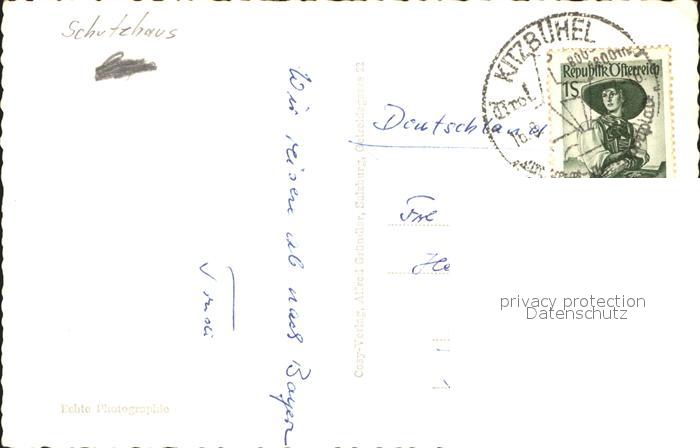 Schutzhaus
KITZBÜHEL
Tirol
Republik Österreich
1S
Deutschland
Wir reisen ab nach Bayern
Cosy-Verlag, Alfred Gründler, Salzburg,
privacy protection
Datenschutz
Echte Photographie